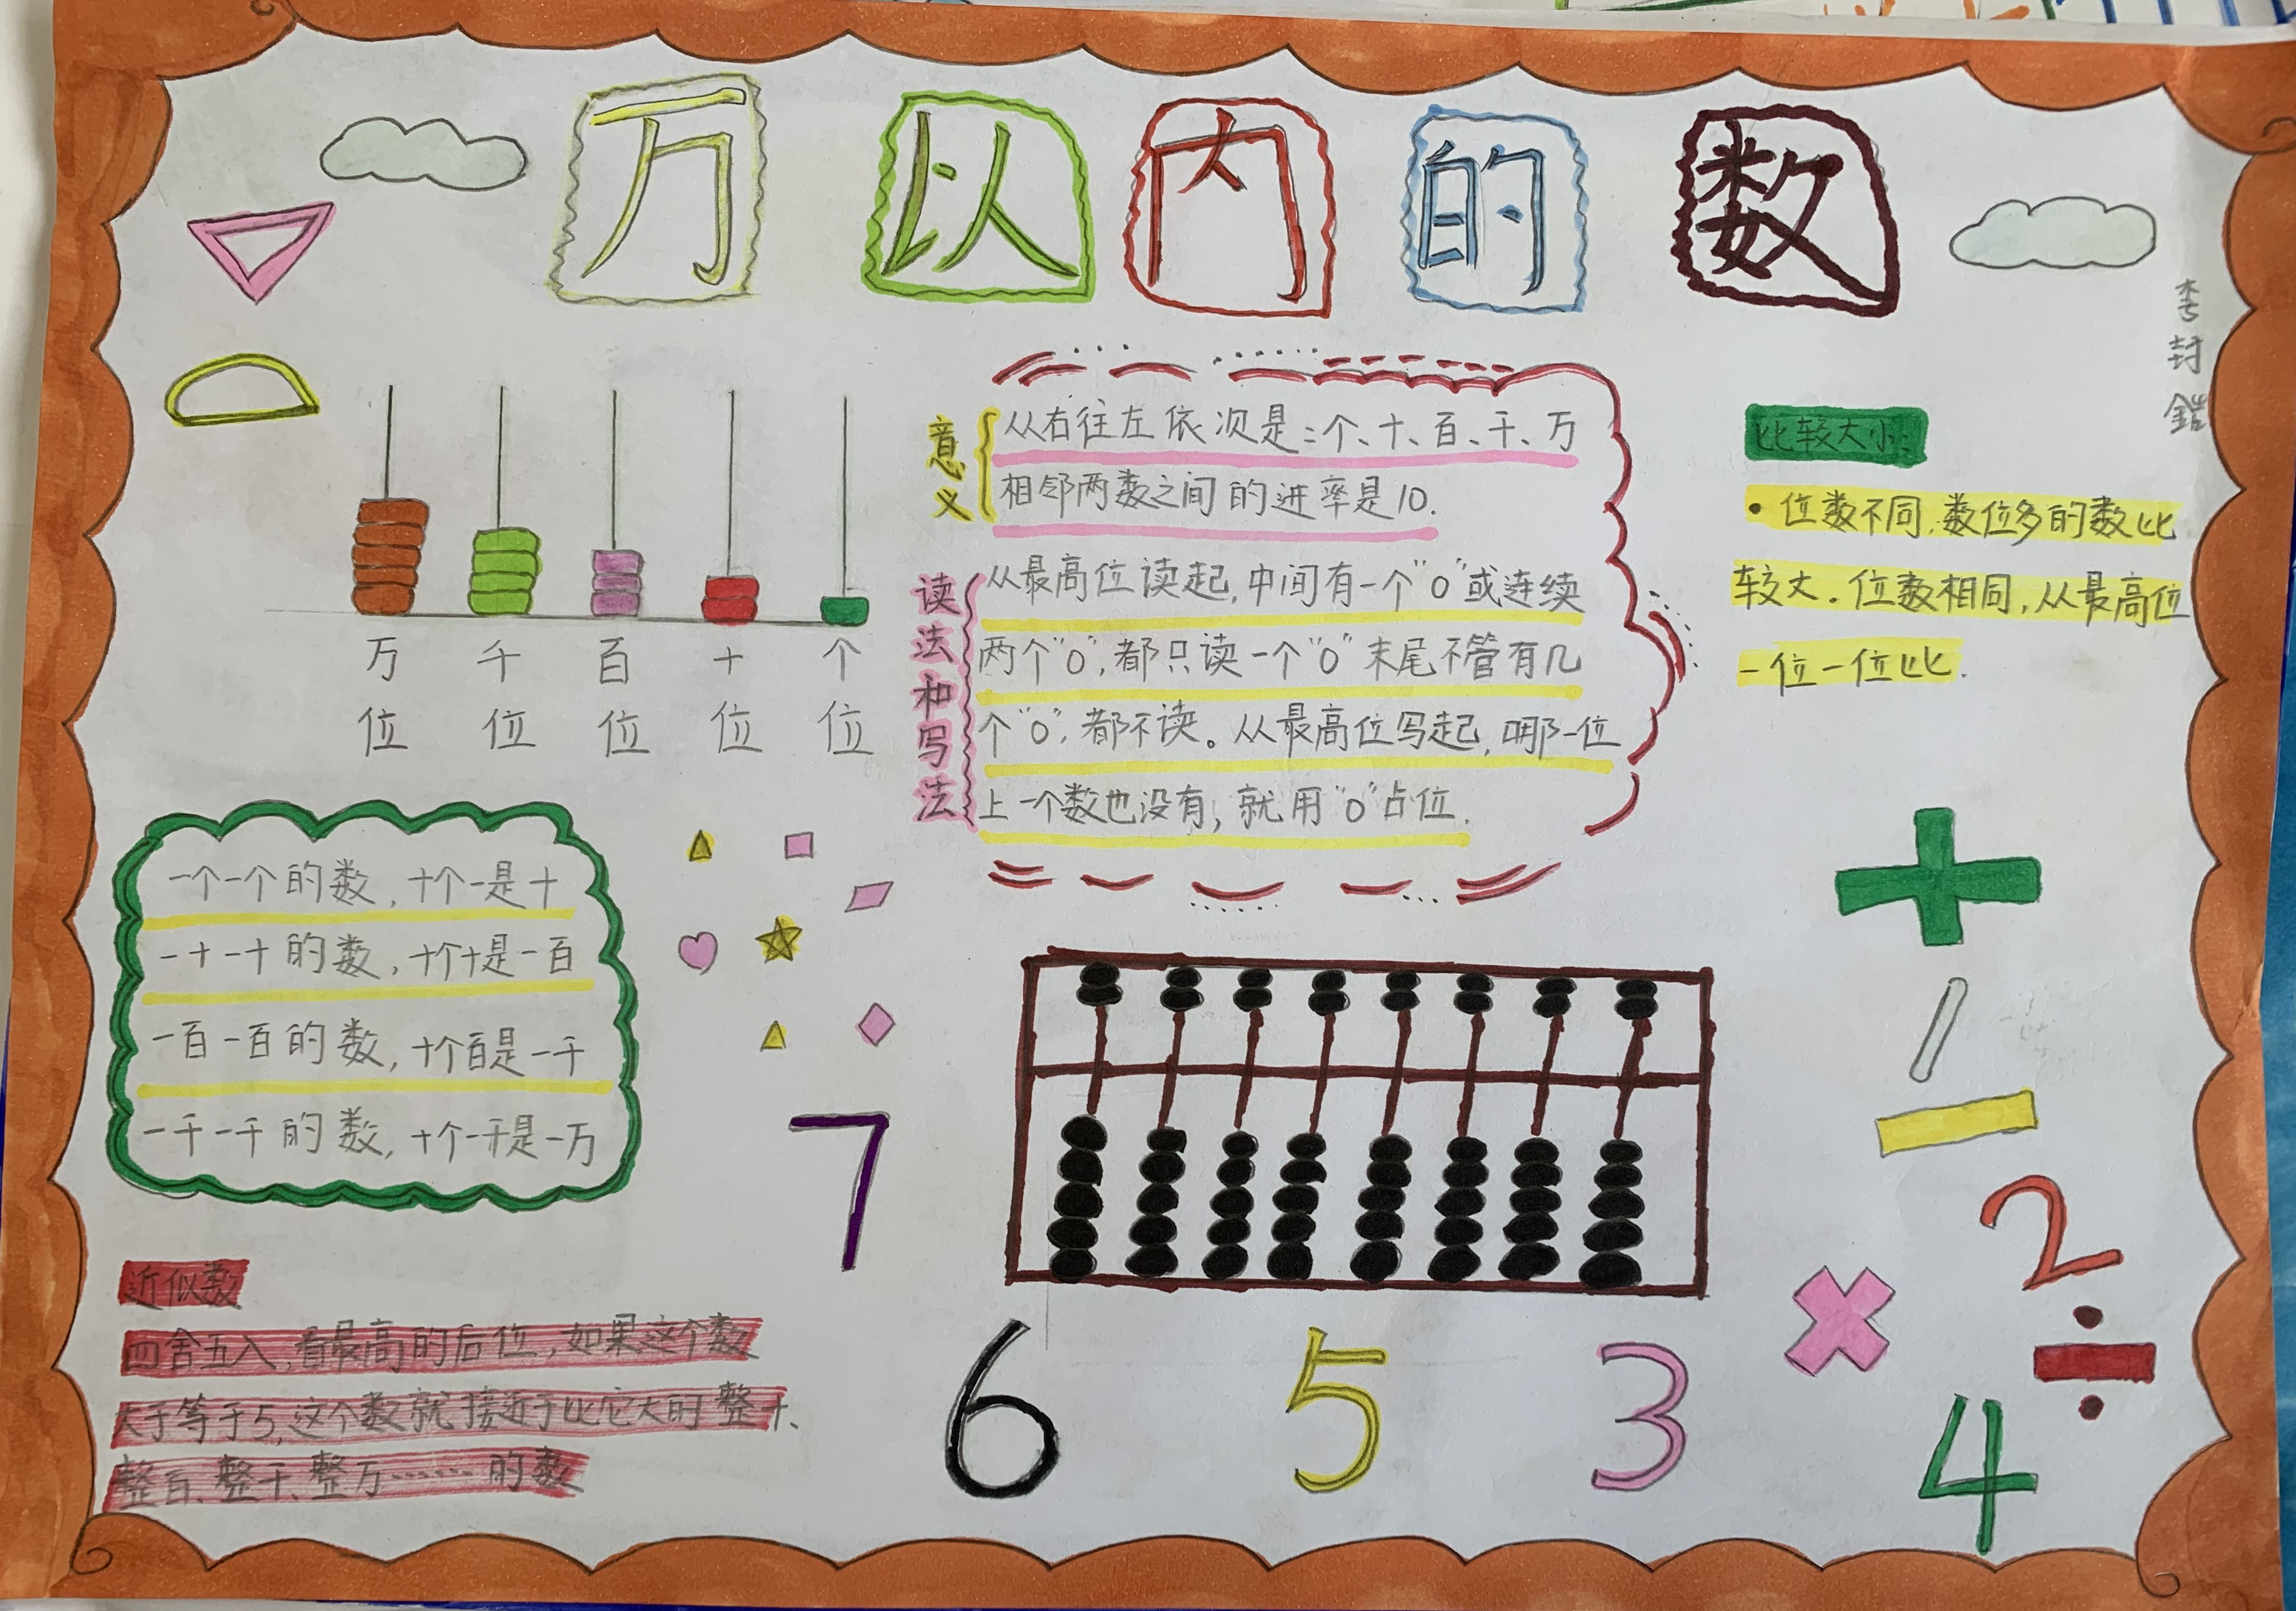 万以内的数
李封鎧
万位 千位 百位 十位 个位
意义
从右往左依次是:个、十、百、千、万
相邻两数之间的进率是10.
读法和写法
从最高位读起,中间有一个"0"或连续
两个"0",都只读一个"0"末尾不管有几
个"0",都不读。从最高位写起,哪一位
上一个数也没有,就用"0"占位.
比较大小:
·位数不同,数位多的数比
较大。位数相同,从最高位
一位一位比.
一个一个的数,十个一是十
一十一十的数,十个十是一百
一百一百的数,十个百是一千
一千一千的数,十个一千是一万
近似数
四舍五入,看最高的后位,如果这个数
大于等于5,这个数就接近于比它大的整十、
整百、整千、整万……的数
7
+
-
2
×
÷
6 5 3 4